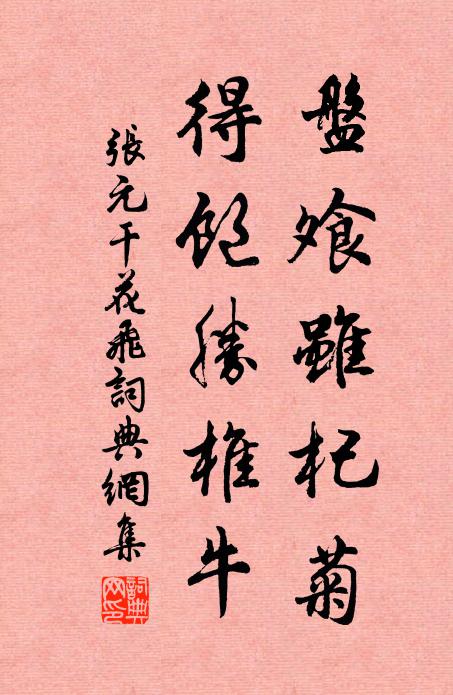 盤飧雖杞菊
得飽勝椎牛
張元干花飛詞典網集
詞典網印